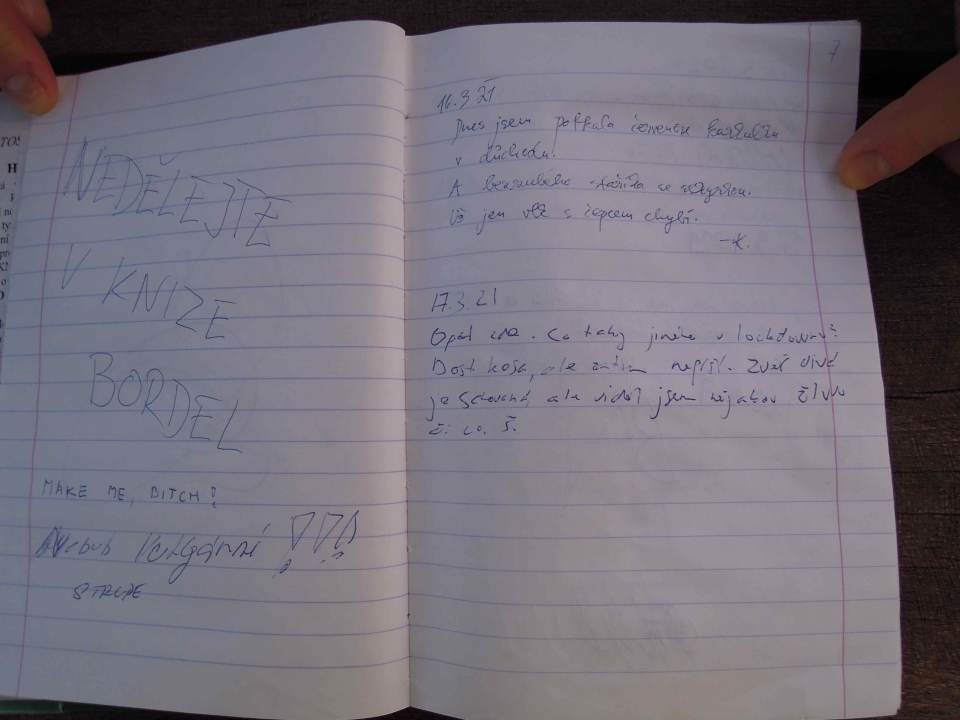 NEDĚLEJTE
V KNIZE
BORDEL
MAKE ME, BITCH!
Nebuď Vulgární !!!
STRÝČE
7
16.3 21
Dnes jsem potkala červenou karkulku
v důchodu.
A
Už jen vlk s čepcem chybí.
-K.
17.3.21
Opět zde. Co taky jiného v lockdownu?
Dost kosa, ale zatím neprší. Zvěř divá
je schovaná ale viděl jsem nějakou žluvu
či co. Š.